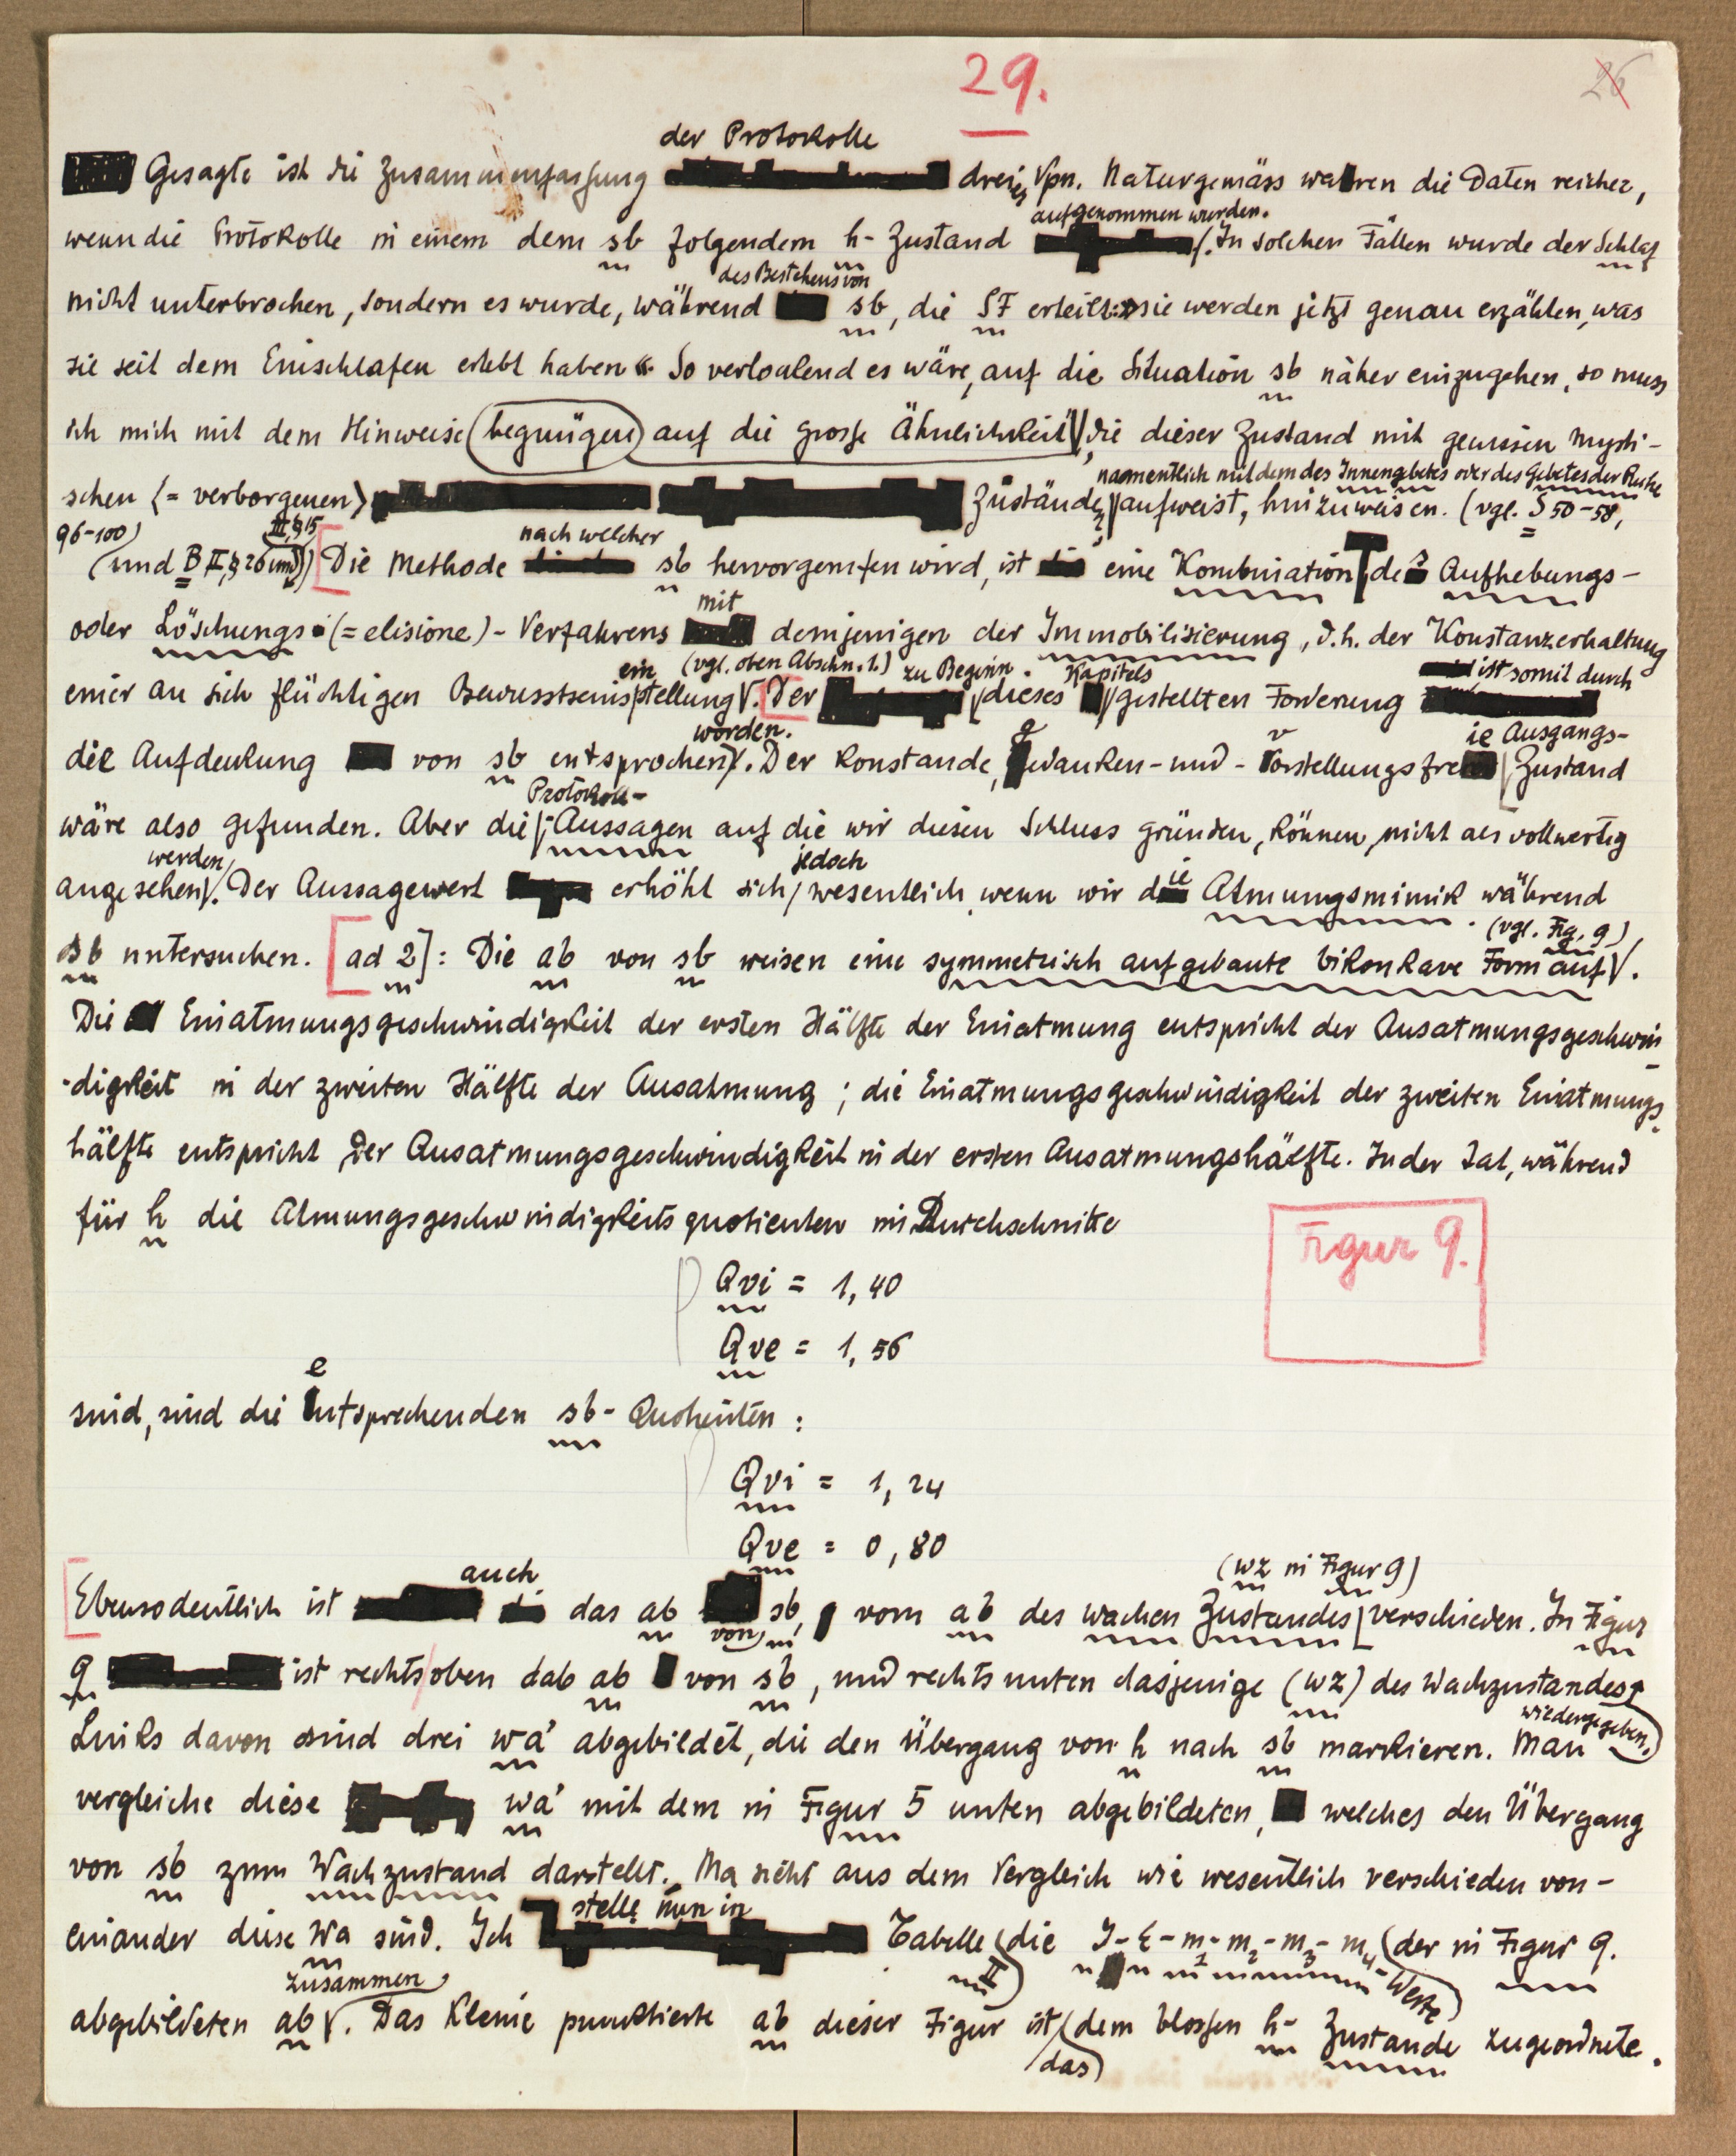 29.
26
der Protokolle
Gesagte ist die Zusammenfassung dreier Vpn. Naturgemäss waren die Daten reicher,
aufgenommen wurden.
wenn die Protokolle in einem dem sb folgendem h-Zustand . In solchen Fällen wurde der Schlaf
des Bestehens von
nicht unterbrochen, sondern es wurde, während sb, die SF erteilt: »sie werden jetzt genau erzählen, was
sie seit dem Einschlafen erlebt haben«. So verlockend es wäre, auf die Situation sb näher einzugehen, so muss
ich mich mit dem Hinweise begnügen auf die grosse Ähnlichkeit, die dieser Zustand mit gewissen mysti-
namentlich mit dem des Innengebetes oder des Gebetes der Ruhe
schen (= verborgenen) Zustände, aufweist, hinzuweisen. (vgl. S 50-58,
96-100) III, §15 nach welcher
(und B II, § 26 und)) Die Methode sb hervorgerufen wird, ist eine Kombination des Aufhebungs-
mit
oder Löschungs-(= elisione)-Verfahrens demjenigen der Immobilisierung, d.h. der Konstanzerhaltung
ein (vgl. oben Abschn. 1.) zu Beginn Kapitels ist somit durch
einer an sich flüchtigen Bewusstseinsstellung. Der dieses gestellten Forderung
worden. g v ie Ausgangs-
die Aufdeckung von sb entsprochen. Der konstande, gedanken-und-vorstellungsfreie Zustand
Protokoll-
wäre also gefunden. Aber die Aussagen auf die wir diesen Schluss gründen, können nicht als vollwertig
werden jedoch
angesehen. Der Aussagewert erhöht sich wesentlich wenn wir die Atmungsmimik während
(vgl. Fig. 9)
sb untersuchen. [ad 2]: Die ab von sb weisen eine symmetrisch aufgebaute bikonkave Form auf.
Die Einatmungsgeschwindigkeit der ersten Hälfte der Einatmung entspricht der Ausatmungsgeschwin-
-digkeit in der zweiten Hälfte der Ausatmung; die Einatmungsgeschwindigkeit der zweiten Einatmungs-
hälfte entspricht der Ausatmungsgeschwindigkeit in der ersten Ausatmungshälfte. In der Tat, während
für h die Atmungsgeschwindigkeitsquotienten im Durchschnitte
Figur 9.
Qvi = 1,40
Qve = 1,56
e
sind, sind die entsprechenden sb-Quotienten:
Qvi = 1,24
Qve = 0,80
auch (wz in Figur 9)
Ebenso deutlich ist das ab von sb, vom ab des wachen Zustandes verschieden. In Figur
9 ist rechts oben dab ab von sb, und rechts unten dasjenige (wz) des Wachzustandes
wiedergegeben.
Links davon sind drei wa' abgebildet, die den Übergang von h nach sb markieren. Man
vergleiche diese wa' mit dem in Figur 5 unten abgebildeten, welches den Übergang
von sb zum Wachzustand darstellt. Ma sieht aus dem Vergleich wie wesentlich verschieden von-
stelle nun in
einander diese wa sind. Ich Tabelle II die J-E-m1-m2-m3-m4- Werte der in Figur 9.
zusammen
abgebildeten ab. Das kleine punktierte ab dieser Figur ist das dem blossen h-Zustande zugeordnete.